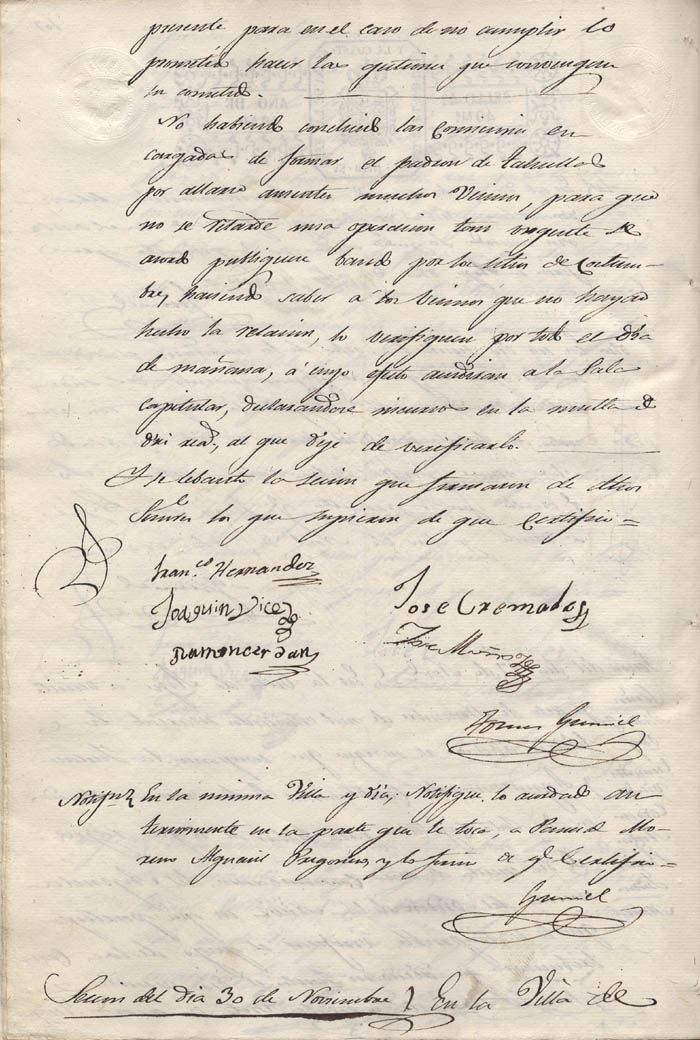 presente para en el caso de no cumplir lo
prometido hacer las gestiones que convengan
su cometido.
No habiendo concluido las Comisiones en
cargadas de formar el padron de tahullas
por allarse ausentes muchos Vecinos, para que
no se retarde una operacion tan urgente se
acordo publiquen bando por los sitios de costum-
bre, haciendo saber á los Vecinos que no hayan
hecho la relacion, lo verifiquen por todo el dia
de mañana, á cuyo efecto acudiran a la Sala
capitular, declarandose incursos en la multa de
real, al que deje de verificarlo.
Y se lebantó la secion que firmaron de dhos
Señores los que supieron de que Certifico=
Franco Hernandez
Joaquin Vicedo
Jose Cremades
Ramon cerdan
Jose Muñoz
Tomas Gumiel
En la misma Villa y dia; Notifiqué lo acordado an
teriormente en la parte que le toca, a Pascual Mo-
reno Alguacil Pregonero, y lo firmo de q. Certifico=
Gumiel
Secion del dia 30 de Noviembre } En la Villa de